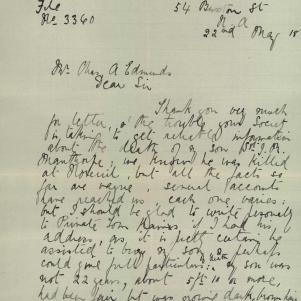 File
No 3360
54 Buxton St
N. A
22nd May 18
Mr Chas A Edmunds
Dear Sir
Thank you very much
for letter, & the trouble your Societ
is taking to get reliable information
about the death of my son
we know he was killed
at Noreuil, but all the facts so
far are vague, several accounts
have reached us each one varies:
but I should be glad to write personally
to Private Tom if I had his
address, as it is quite certain he
assisted to bury my son & perhaps
could give full particulars. My son was
not 22 years, about 5/5 10 or more,
had been fair but was growing dark, from his